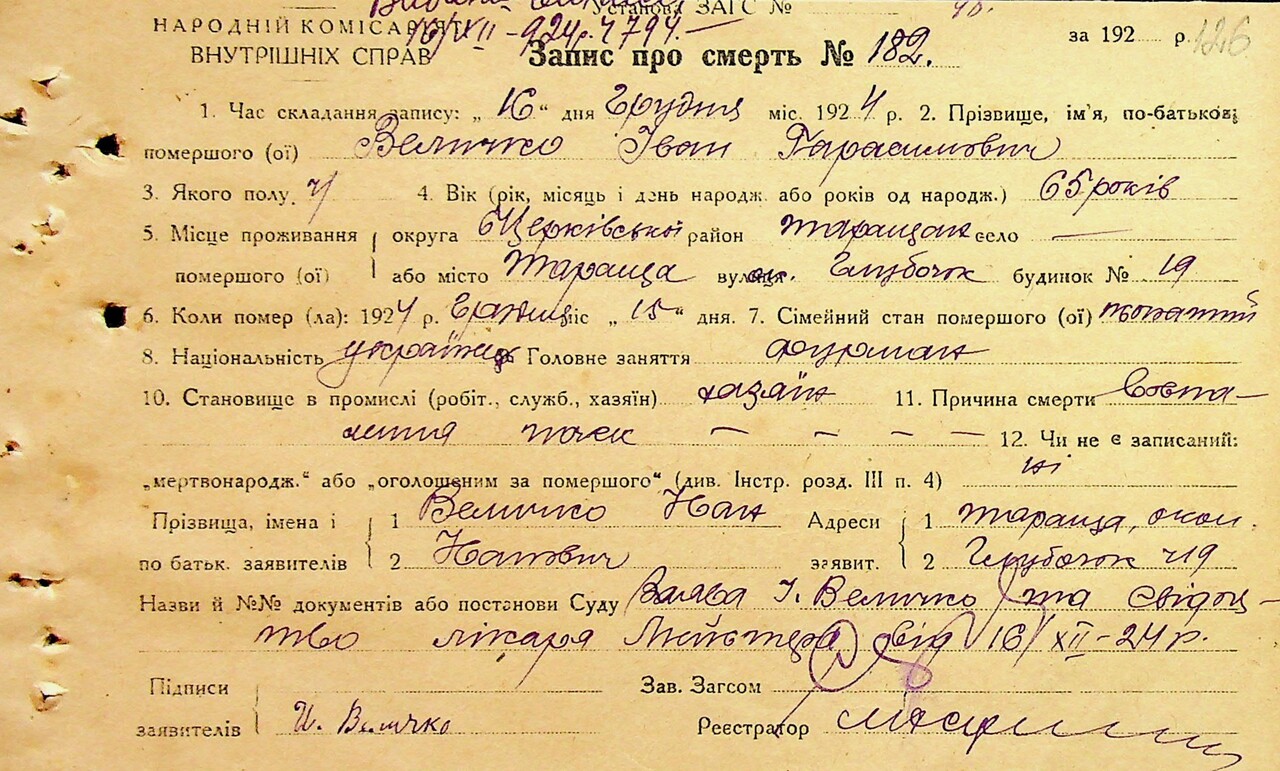 Установа ЗАГС №
НАРОДНІЙ КОМІСАРІЯТ 16/XII-924р. Ч 794.-
ВНУТРІШНІХ СПРАВ
Запис про смерть № 182. за 192 р. 126
1. Час складання запису: „ 16 “ дня Грудня міс. 1924 р. 2. Прізвище, ім'я, по-батькові
помершого (ої) Величко Іван Гарасимович
3. Якого полу ч 4. Вік (рік, місяць і день народж. або років од народж.) 65 років
5. Місце проживання округа БЦерківської район Таращан село —
помершого (ої) або місто Тараща вулиця ок. Глубочок будинок № 19
6. Коли помер (ла): 1924 р. Грудня міс „ 15 “ дня. 7. Сімейний стан помершого (ої)
8. Національність українець Головне заняття фурман
10. Становище в промислі (робіт., служб., хазяїн) хазяїн 11. Причина смерти Воспа-
ления почек — — — — 12. Чи не є записаний:
„мертвонародж.“ або „оголошеним за помершого“ (див. Інстр. розд. III п. 4) ні
Прізвища, імена і 1 Величко Адреси 1 Тараща, окол.
по батьк. заявителів 2 заявит. 2 Глубочок ч 19
Назви й №№ документів або постанови Суду Заява І. Величко та свідоц-
тво лікаря від 16/XII-24 р.
Підписи Зав. Загсом
заявителів И. Величко Реєстратор